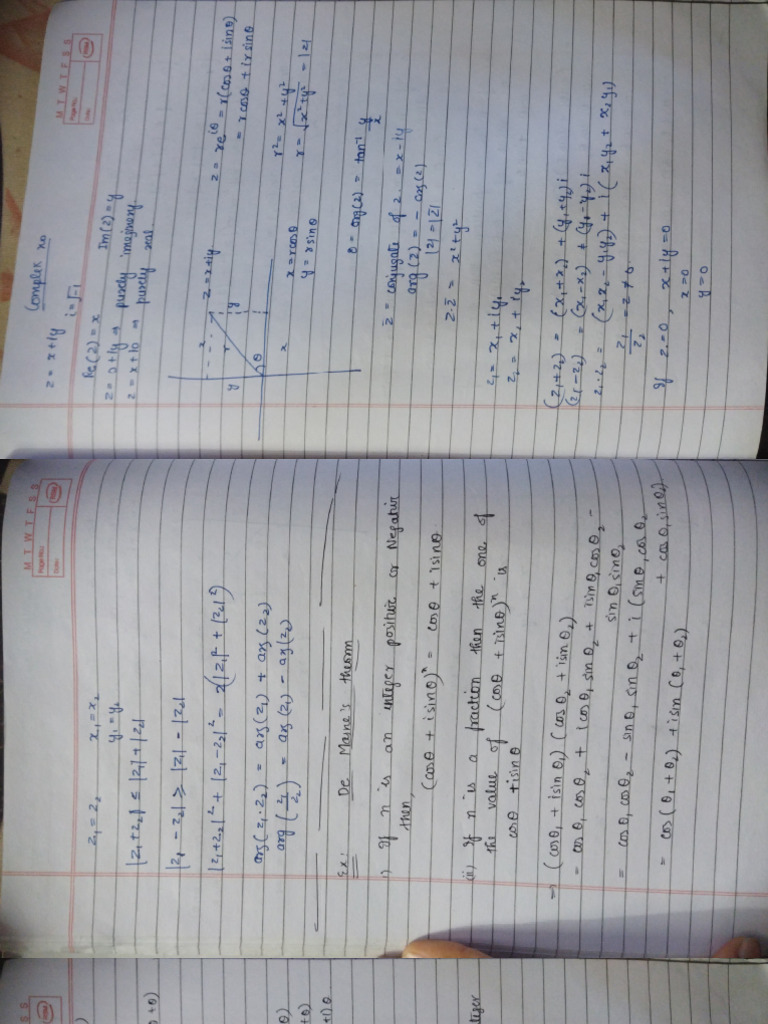 M T W T F S S
Page No.:
Date:
Complex no
z = x+iy
i = √-1
Re(z) = x Im(z) = y
z = 0+iy ⇒ purely imaginery
z = x+i0 ⇒ purely real
y
x
z = x+iy
r
y
θ
x
z = re^iθ = r(cosθ + isinθ)
= r cosθ + i r sinθ
x = r cosθ
y = r sinθ
r² = x² + y²
r = √x²+y² = |z|
θ = arg(z) = tan⁻¹ y/x
z̄ = conjugate of z. = x - iy
arg(z̄) = - arg(z)
|z| = |z̄|
z·z̄ = x² + y²
z₁ = x₁ + iy₁
z₂ = x₁ + iy₂
(z₁+z₂) = (x₁+x₂) + (y₁+y₂)i
(z₁-z₂) = (x₁-x₂) + (y₁-y₂)i
z₁·z₂ = (x₁x₂ - y₁y₂) + i(x₁y₂ + x₂y₁)
z₁/z₂ = z ≠ 0
If z=0, x+iy=0
x=0
y=0
M T W T F S S
Page No.:
Date:
z₁ = z₂ x₁ = x₂
y₁ = y₂
|z₁+z₂| ≤ |z₁|+|z₂|
|z₁ - z₂| ≥ |z₁| - |z₂|
|z₁+z₂|² + |z₁-z₂|² = 2(|z₁|² + |z₂|²)
arg(z₁·z₂) = arg(z₁) + arg(z₂)
arg(z₁/z₂) = arg(z₁) - arg(z₂)
Ex:
i) If n is an integer positive or Negative
then,
(cosθ + isinθ)ⁿ = cosθ + isinθ
(ii) If n is a fraction then the one of
the value of (cosθ + isinθ)ⁿ is
cosθ + isinθ
⇒ (cosθ₁ + isinθ₁) (cosθ₂ + isinθ₂)
= cosθ₁ cosθ₂ + icosθ₁ sinθ₂ + isinθ₁ cosθ₂ -
sinθ₁ sinθ₂
= cosθ₁ cosθ₂ - sinθ₁ sinθ₂ + i (sinθ₁ cosθ₂
+ cosθ₁ sinθ₂)
= cos(θ₁ + θ₂) + isin(θ₁ + θ₂)